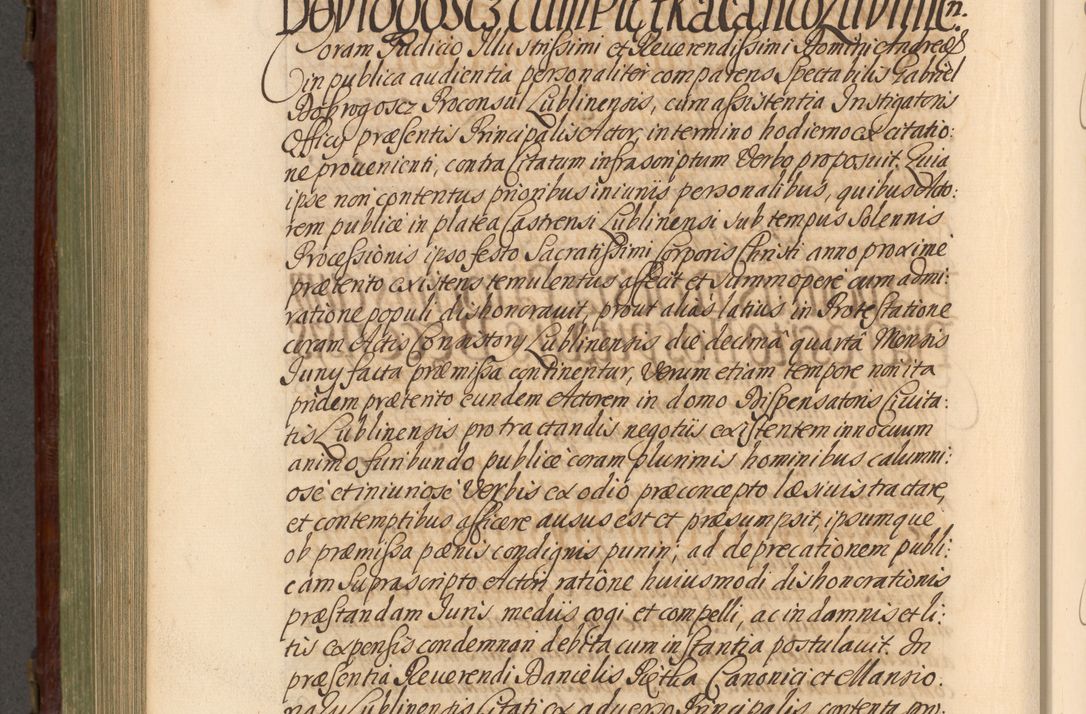 Dobrogoscz cum Pietka canco: Lublinen.
Coram Judicio Illustrissimi et Reverendissimi Domini Andreæ
in publica audientia personaliter comparens Spectabilis Gabriel
Dobrogoscz Proconsul Lublinensis, cum assistentia Instigatoris
Officÿ præsentis Principalis Actor, in termino hodierno ex citatio:
ne provenienti, contra Citatum infrascriptum Verbo proposuit. Quia
ipse non contentus prioribus iniuriis personalibus, quibus Acto:
rem publicè in platea Castrensi Lublinensi sub tempus Solennis
Processionis ipso festo Sacratissimi Corporis Christi anno proximè
præterito existens temulentus affecit et summopere cum admi:
ratione populi dishonoravit, prout alias latius in Protestatione
coram Actis Consistorÿ Lublinensis die decima quarta Mensis
Junÿ facta præmissa continentur, Verum etiam tempore non ita
pridem præterito eundem Actorem in domo Dispensatoris Civita:
tis Lublinensis pro tractandis negotiis existentem innocuum
animo furibundo publicè coram plurimis hominibus calumni:
osè et iniuriosè Verbis ex odio præconcepto læsivis tractare,
et contemptibus afficere ausus est et præsumpsit, ipsumque
ob præmissa pænis condignis puniri, ad deprecationem publi:
cam suprascripto Actori ratione huiusmodi dishonorationis
præstandam Juris mediis cogi et compelli, ac in damnis et li:
tis expensis condemnari debita cum instantia postulavit. In
præsentia Reverendi Danielis Pietka Canonici et Mansio:
narÿ Lublinensis Citati ex adverso Principalis contenta pro: